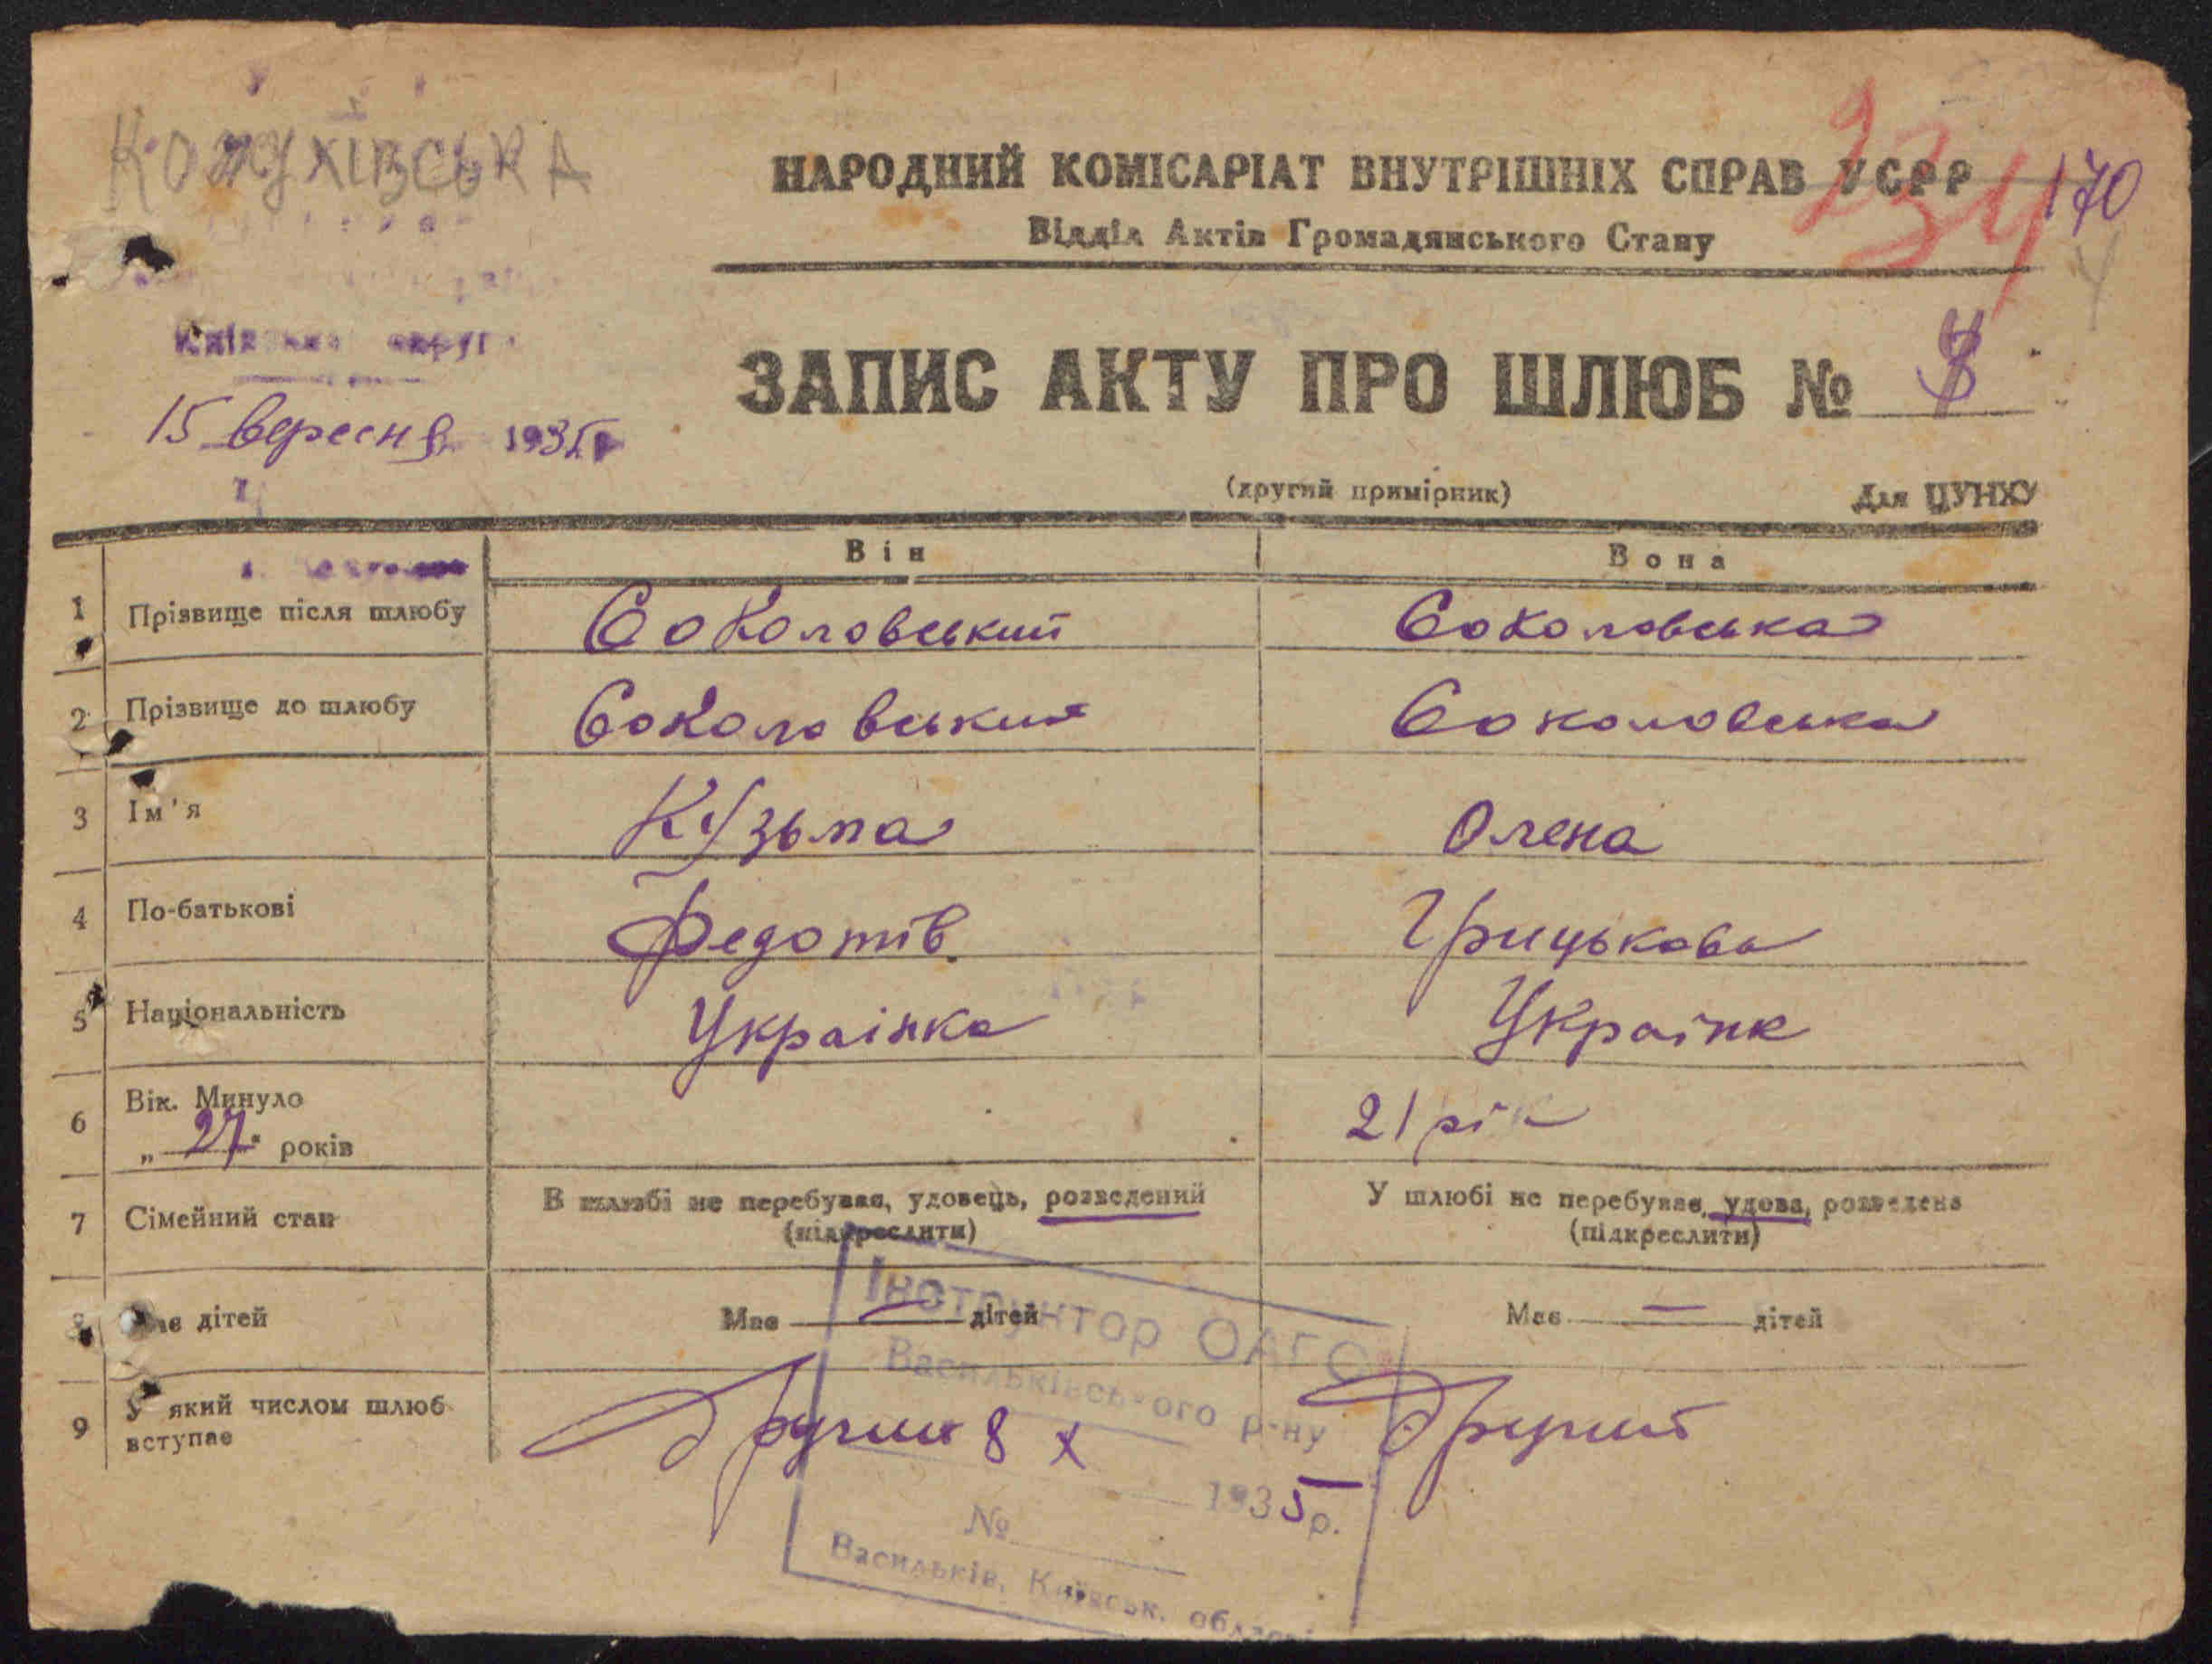 КОЖУХІВСЬКА
НАРОДНИЙ КОМІСАРІАТ ВНУТРІШНІХ СПРАВ УСРР
234
170
Відділ Актів Громадянського Стану
ЗАПИС АКТУ ПРО ШЛЮБ №
15 вересня 1935 р
(другий примірник)
Для ЦУНХУ
Він
Вона
1 Прізвище після шлюбу Соколовський Соколовська
2 Прізвище до шлюбу Соколовський Соколовська
3 Ім'я Кузьма Олена
4 По-батькові Федотів. Грицькова
5 Національність Українка Україnк
6 Вік. Минуло
„ 27 " років
21 рік
7 Сімейний стан В шлюбі не перебував, удовець, розведений У шлюбі не перебував, удова, розведена
(підкреслити) (підкреслити)
8 дітей Має — дітей Має — дітей
9 У який числом шлюб
вступає
Другий 8 X Другий
Інструктор ОАГС
Васильківського р-ну
1935 р.
№
Васильків, Київськ. області